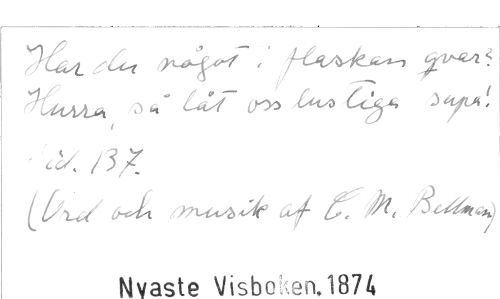 Har du något i flaskan qvar?
Hurra, så låt oss lustiga supa!
Sid. 137.
(Ord och musik af C. M. Bellman)
Nyaste Visboken, 1874